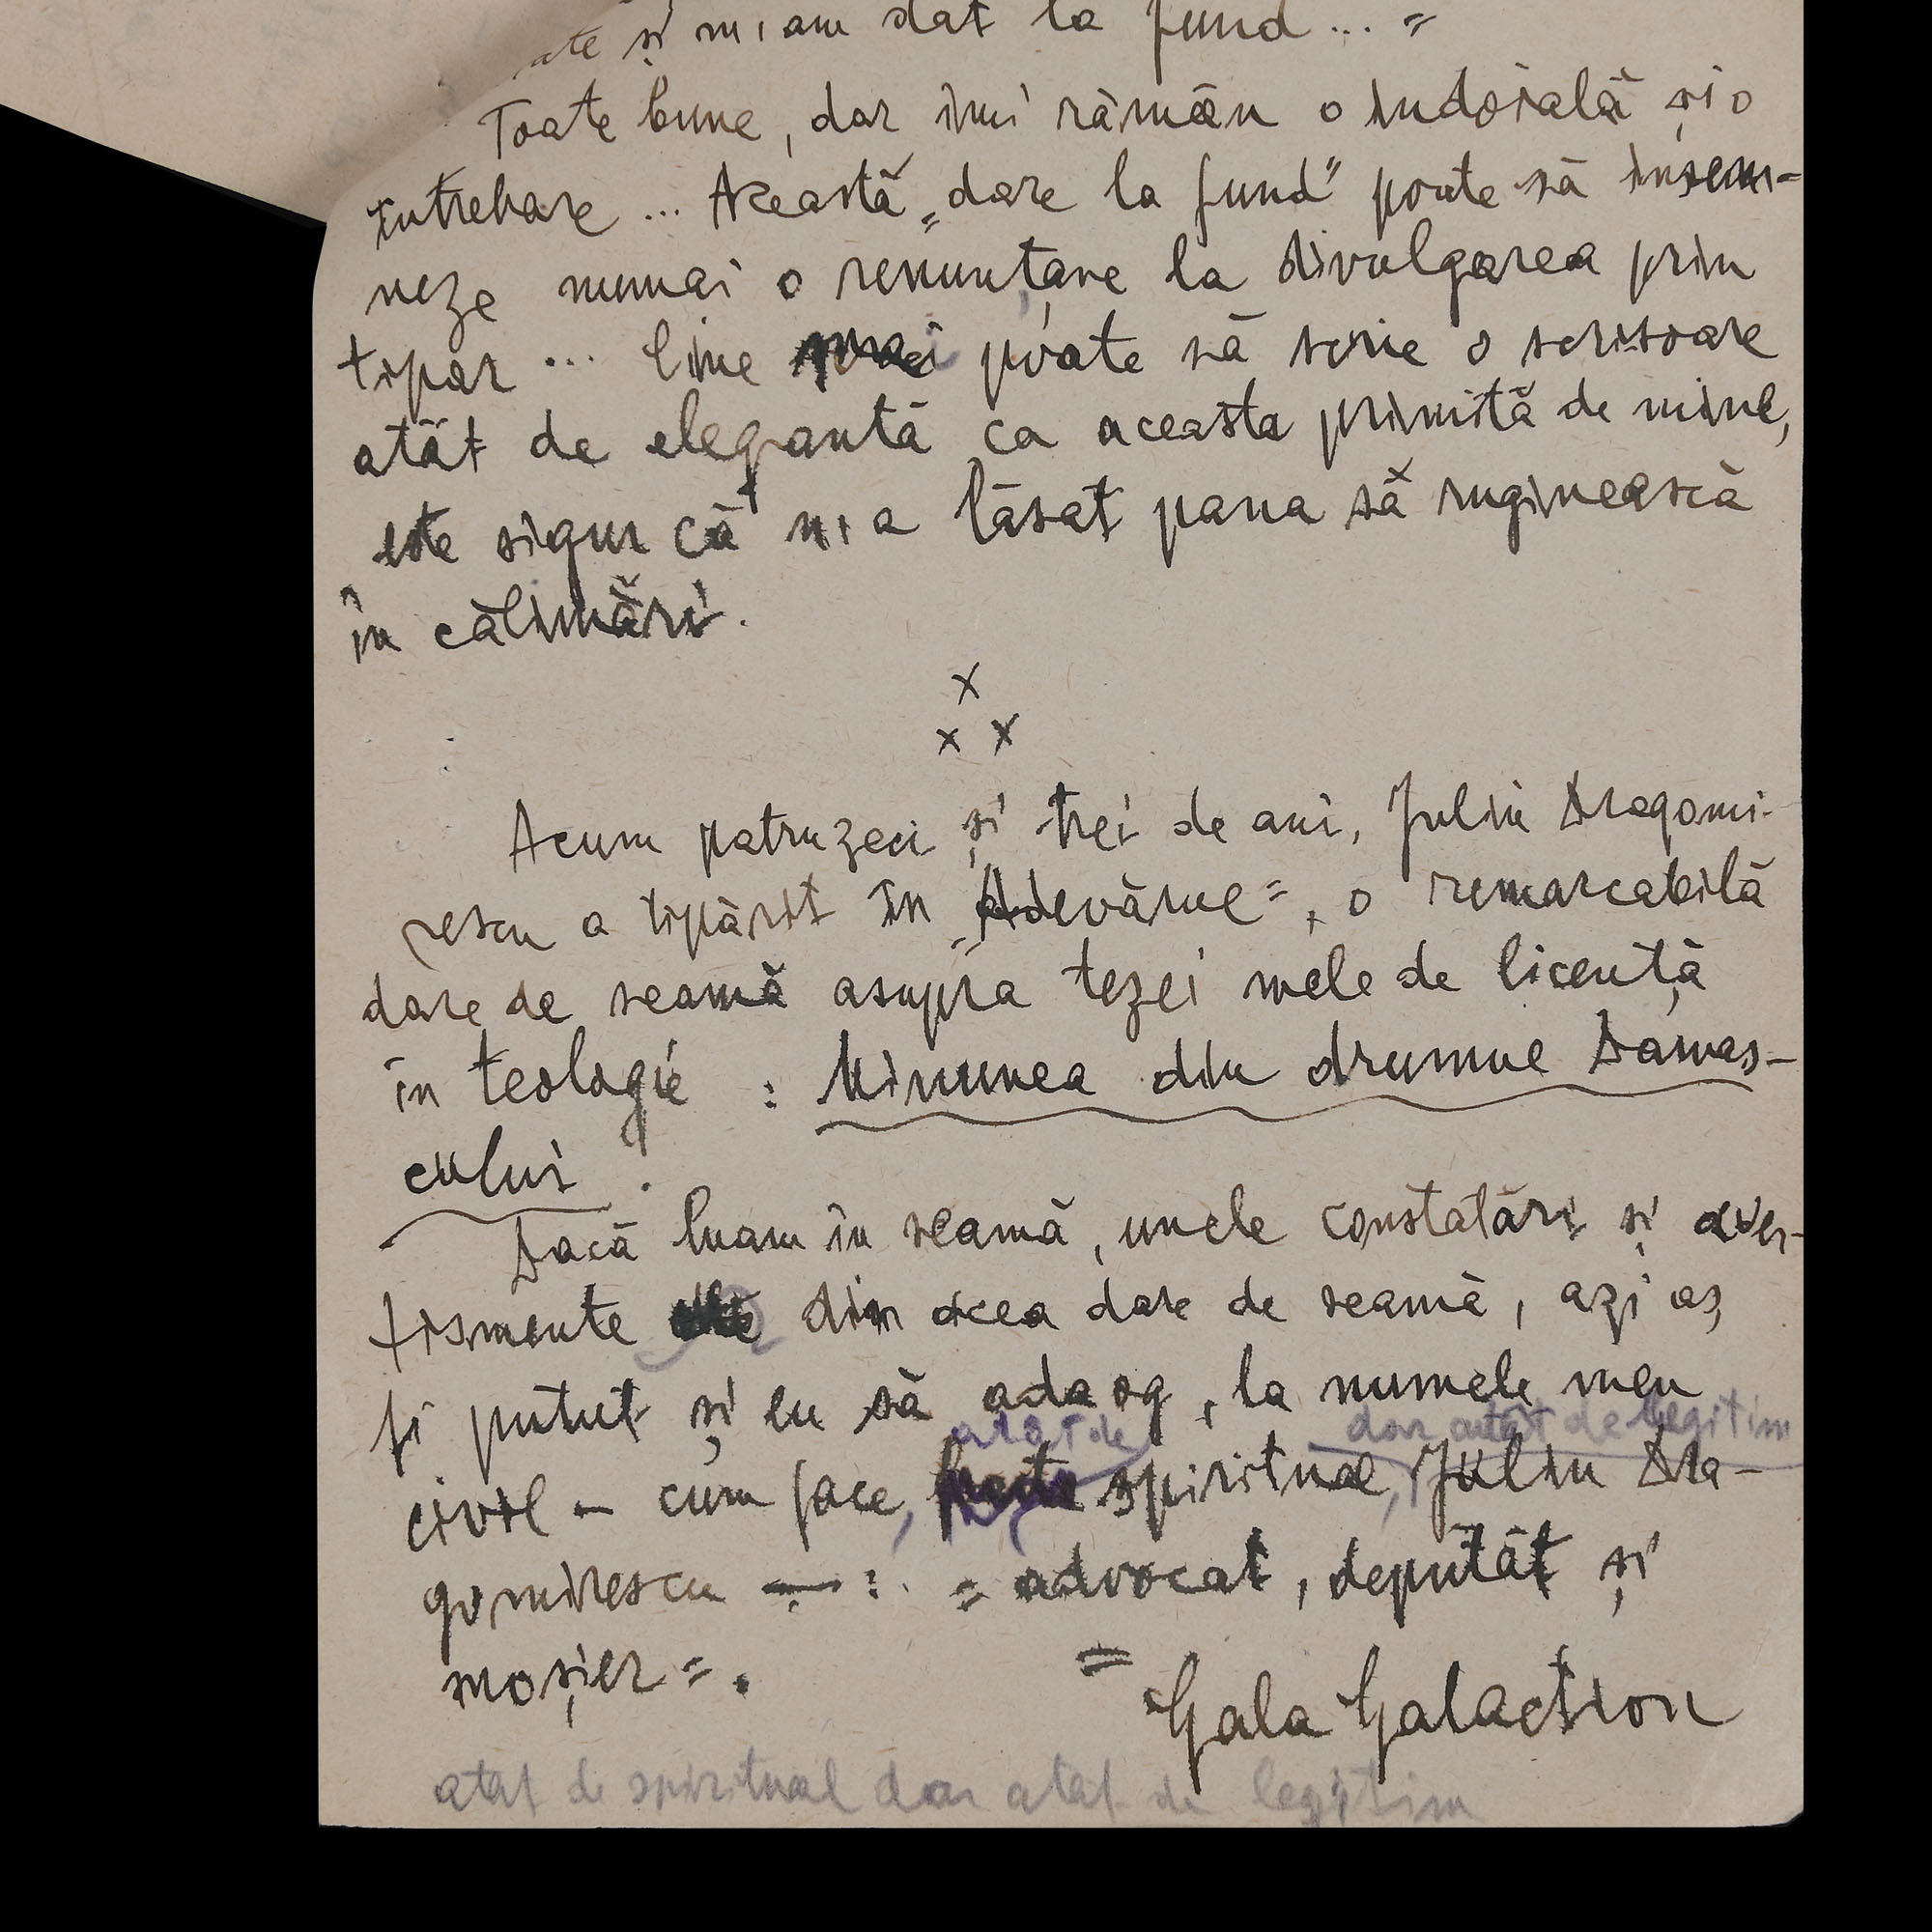 și m'am dat la fund..."
Toate bune, dar îmi rămân o îndoială și o
întrebare ... Această „dare la fund" poate să însem-
neze numai o renunțare la divulgarea prin
tipar ... Cine mai poate să scrie o scrisoare
atât de elegantă ca aceasta primită de mine,
este sigur că n'a lăsat pana să ruginească
în călimări.
x
x x
Acum patruzeci și trei de ani, Juliu Dragomi-
rescu a tipărit în „Adevărul", o remarcabilă
dare de seamă asupra tezei mele de licență
în teologie : Minunea din drumul Damas-
cului .
Dacă luam în seamă, unele constatări și aver-
tismente din acea dare de seamă, azi aș
fi putut și eu să adaog, la numele meu
atât de dar atât de legitim
civil – cum face, spiritual, Juliu Dra-
gomirescu — : „advocat, deputat și
moșier".
= Gala Galaction
atat de spiritual dar atat de legitim